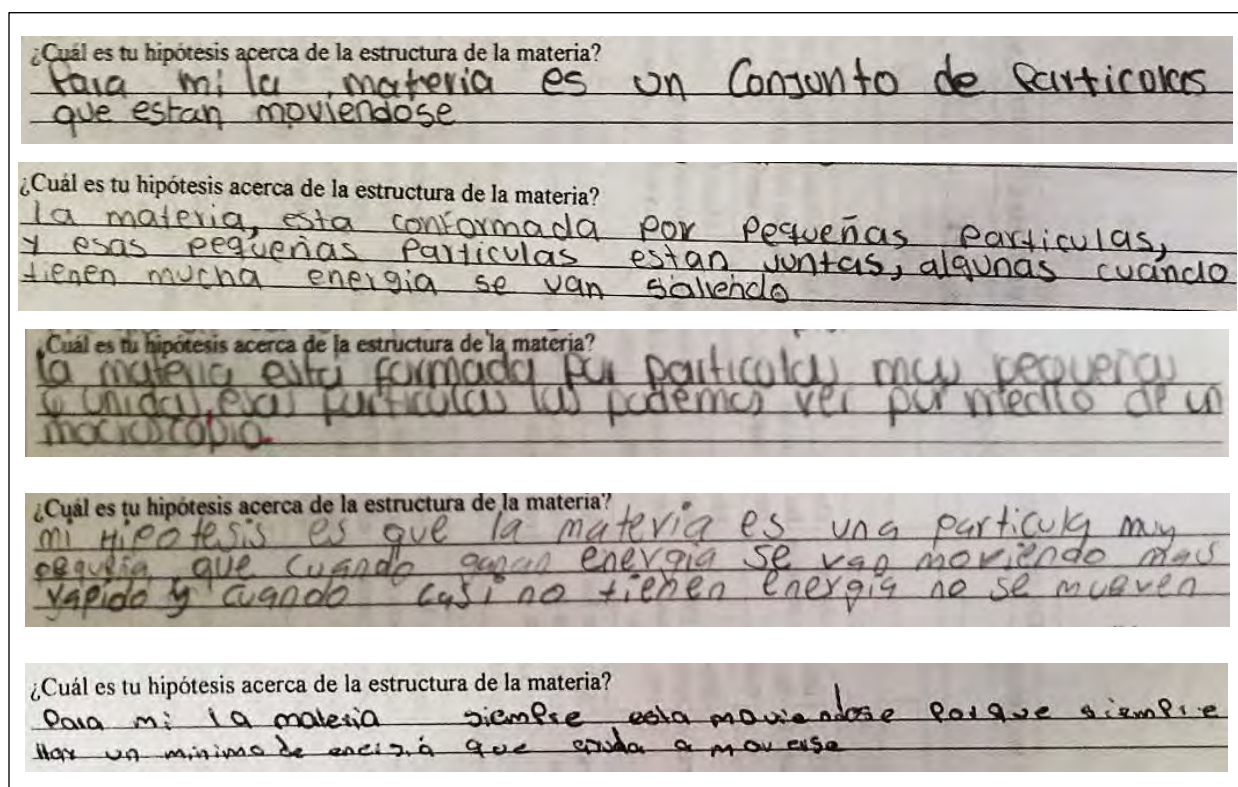 ¿Cuál es tu hipótesis acerca de la estructura de la materia?
Para mi la materia es un Conjunto de particolas
que estan moviendose
¿Cuál es tu hipótesis acerca de la estructura de la materia?
la materia, esta conformada por pequeñas particulas,
y esas pequeñas particulas estan juntas, algunas cuándo
tienen mucha energia se van saliendo
¿Cuál es tu hipótesis acerca de la estructura de la materia?
la materia esta formada por particolas muy pequeñas
y unidas, esas particulas las podemos ver por medio de un
macroscopio.
¿Cuál es tu hipótesis acerca de la estructura de la materia?
mi Hipotesis es que la materia es una particula muy
pequeña que cuando ganan energia se van moviendo mas
rapido y cuando casi no tienen energia no se mueven
¿Cuál es tu hipótesis acerca de la estructura de la materia?
Para mi la materia siempre esta moviendose porque siempre
hay un minimo de energia que a moverse